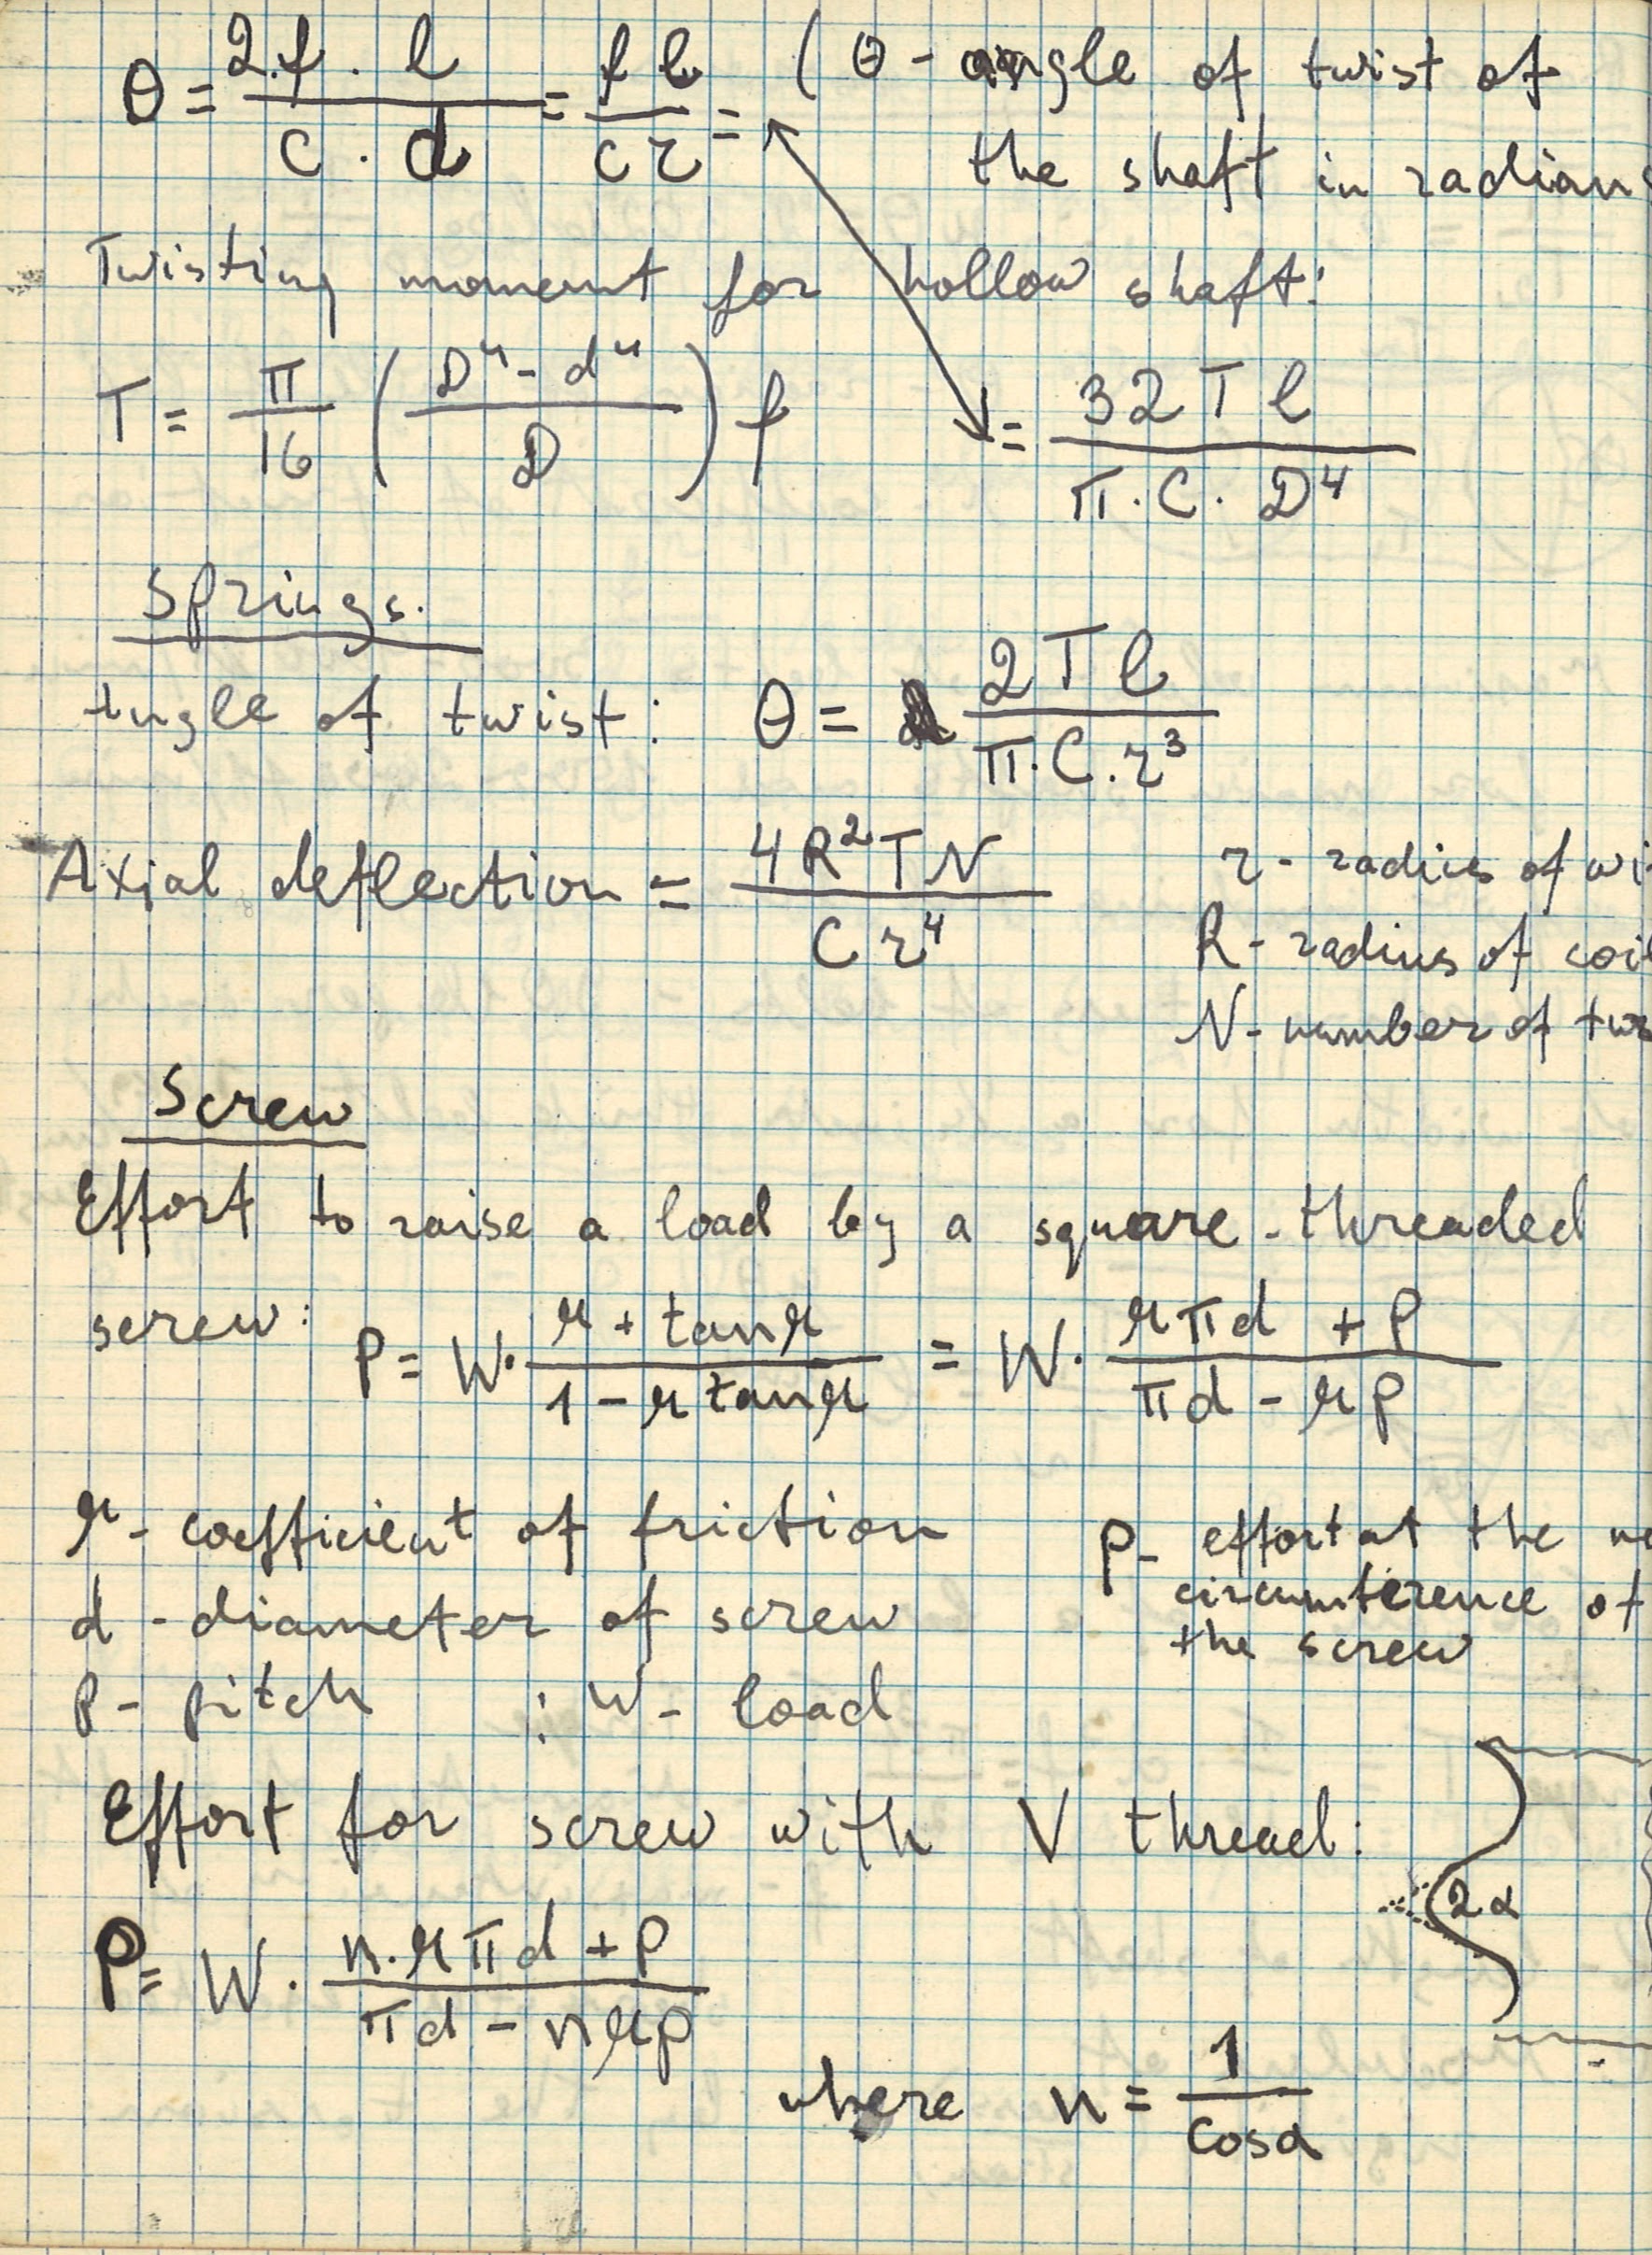 θ = 2.f . l / c . d = f l / c r = ( θ - angle of twist of
the shaft in radians
Twisting moment for hollow shaft:
T = π/16 ( D⁴ - d⁴ / D ) f = 32 T l / π . C . D⁴
Springs.
Angle of twist: θ = 2 T l / π . C . r³
Axial deflection = 4 R² T N / C r⁴
r - radius of wi
R - radius of coil
N - number of
Screw
Effort to raise a load by a square-threaded
screw: P = W . μ + tan μ / 1 - μ tan μ = W . μ π d + p / π d - μ p
μ - coefficient of friction
d - diameter of screw
p - pitch ; W - load
P - effort at the
circumference of
the screw
Effort for screw with V thread:
2α
P = W . n . μ π d + p / π d - n μ p
where n = 1 / cos α